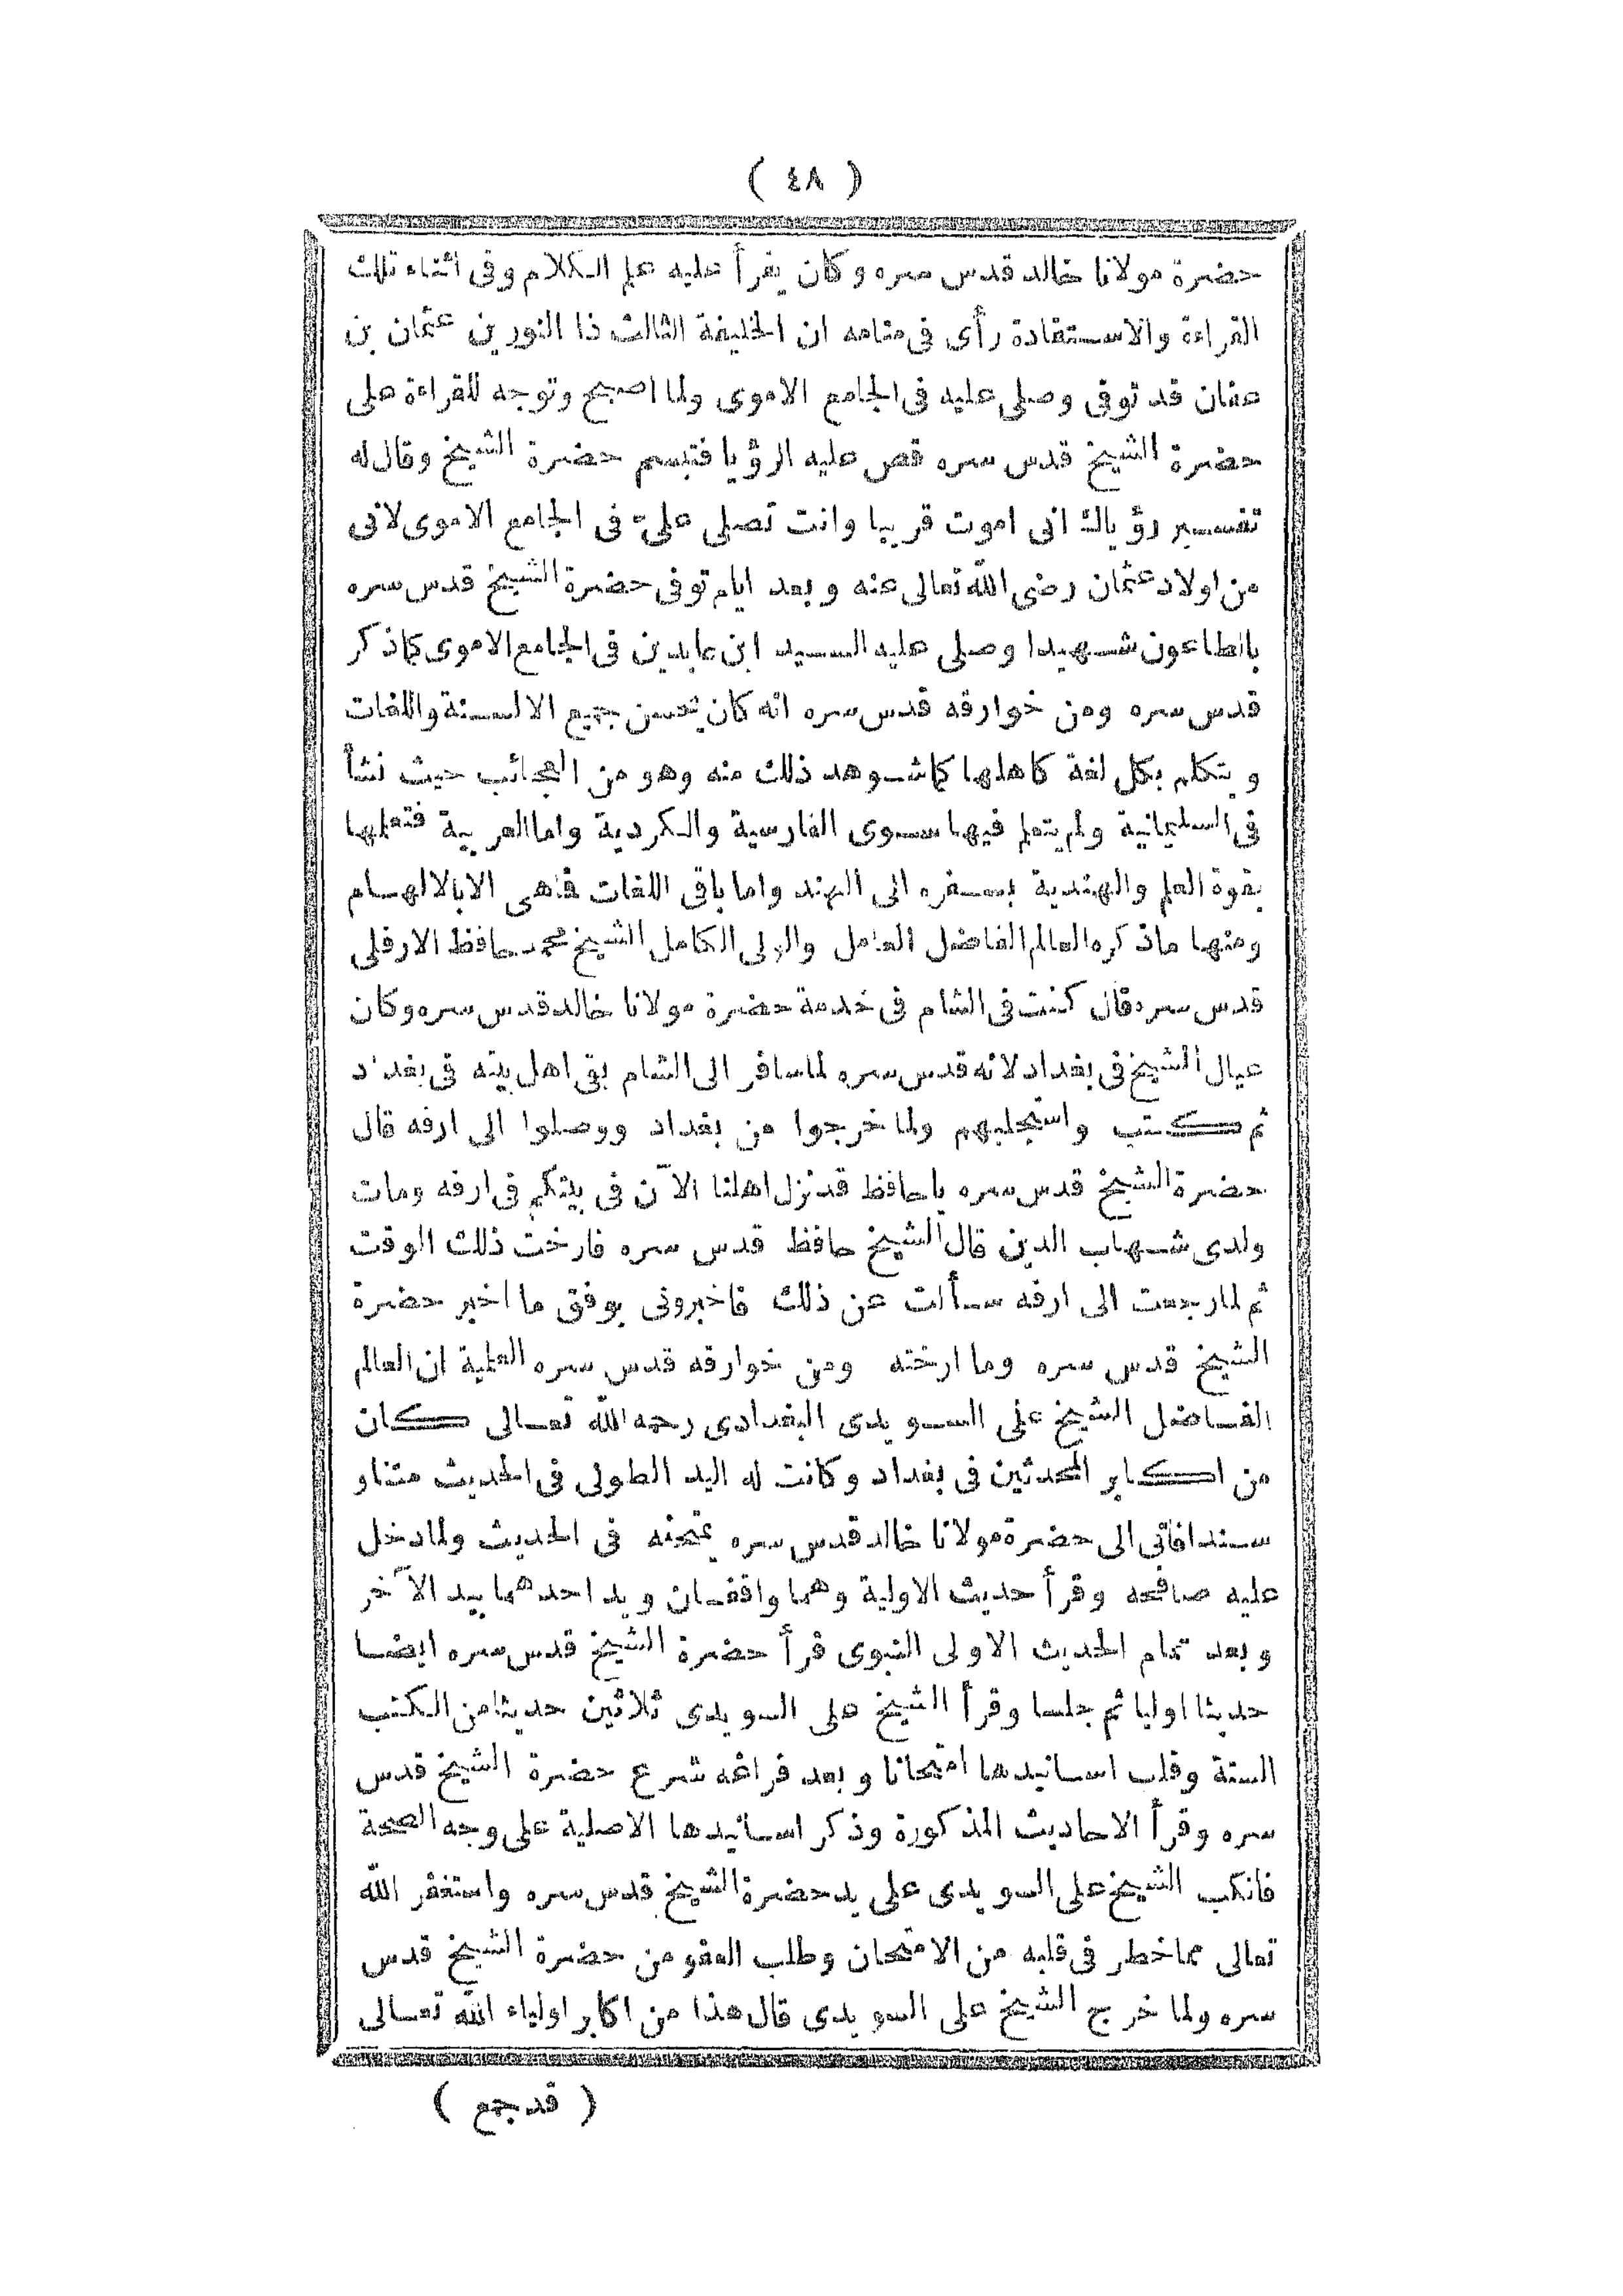 ( ٤٨ )
حضرة مولانا خالد قدس سره وكان يقرأ عليه علم الكلام وفى اثناء تلك
القراءة والاستفادة رأى فى منامه ان الخليفة الثالث ذا النورين عثمان بن
عفان قد توفى وصلى عليه فى الجامع الاموى ولما اصبح وتوجه للقراءة على
حضرة الشيخ قدس سره قص عليه الرؤيا فتبسم حضرة الشيخ وقال له
تفسير رؤياك انى اموت قريبا وانت تصلى علىّ فى الجامع الاموى لانى
من اولاد عثمان رضى الله تعالى عنه وبعد ايام توفى حضرة الشيخ قدس سره
بالطاعون شهيدا وصلى عليه السيد ابن عابدين فى الجامع الاموى كما ذكر
قدس سره ومن خوارقه قدس سره انه كان يحسن جميع الالسنة واللغات
ويتكلم بكل لغة كاهلها كما شوهد ذلك منه وهو من العجائب حيث نشأ
فى السليمانية ولم يتعلم فيها سوى الفارسية والكردية واما العربية فتعلمها
بقوة العلم والهندية بسفره الى الهند واما باقى اللغات فماهى الابالالهام
ومنها ماذكره العالم الفاضل العامل والولى الكامل الشيخ محمد حافظ الارفلى
قدس سره قال كنت فى الشام فى خدمة حضرة مولانا خالد قدس سره وكان
عيال الشيخ فى بغداد لانه قدس سره لما سافر الى الشام بقى اهل بيته فى بغداد
ثم كتب واستجلبهم ولما خرجوا من بغداد ووصلوا الى ارفه قال
حضرة الشيخ قدس سره ياحافظ قد نزل اهلنا الآن فى بيتكم فى ارفه ومات
ولدى شهاب الدين قال الشيخ حافظ قدس سره فارخت ذلك الوقت
ثم لما رجعت الى ارفه سألت عن ذلك فاخبرونى بوفق ما اخبر حضرة
الشيخ قدس سره وما ارخته ومن خوارقه قدس سره العلمية ان العالم
الفاضل الشيخ على السويدى البغدادى رحمه الله تعالى كان
من اكابر المحدثين فى بغداد وكانت له اليد الطولى فى الحديث متنا و
سندا فاتى الى حضرة مولانا خالد قدس سره يمتحنه فى الحديث ولما دخل
عليه صافحه وقرأ حديث الاولية وهما واقفان ويد احدهما بيد الآخر
وبعد تمام الحديث الاولى النبوى قرأ حضرة الشيخ قدس سره ايضا
حديثا اوليا ثم جلسا وقرأ الشيخ على السويدى ثلاثين حديثا من الكتب
الستة وقلب اسانيدها امتحانا وبعد فراغه شرع حضرة الشيخ قدس
سره وقرأ الاحاديث المذكورة وذكر اسانيدها الاصلية على وجه الصحة
فانكب الشيخ على السويدى على يد حضرة الشيخ قدس سره واستغفر الله
تعالى مما خطر فى قلبه من الامتحان وطلب العفو من حضرة الشيخ قدس
سره ولما خرج الشيخ على السويدى قال هذا من اكابر اولياء الله تعالى
( قد جمع )